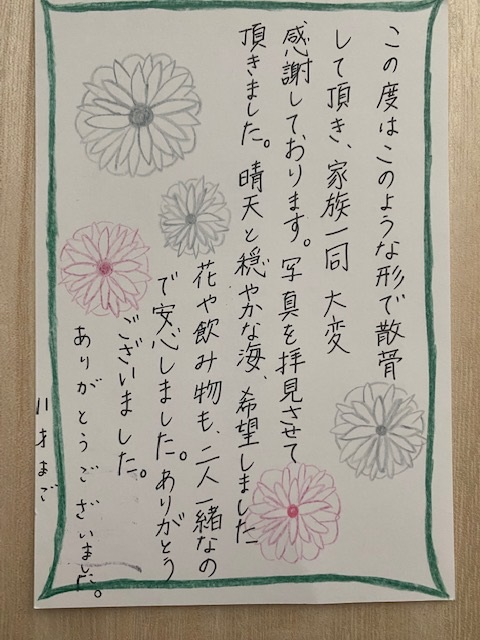 この度はこのような形で散骨
して頂き、家族一同 大変
感謝しております。写真を拝見させて
頂きました。晴天と穏やかな海、希望しました
花や飲み物も、二人一緒なの
で安心しました。ありがとう
ございました。
ありがとうございました。
11才まご